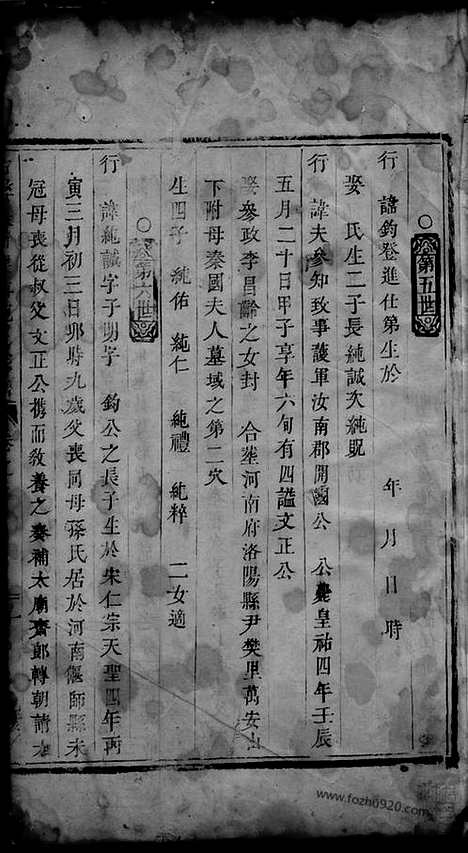 ○第五世
行　諱鈞登進仕第生於　　　年　月　日　時
娶　氏生二子長純誠次純貺
行　諱夫參知致事護軍汝南郡開國公　公薨皇祐四年壬辰
五月二十日甲子享年六旬有四謚文正公
娶參政李昌齡之女封　合塟河南府洛陽縣尹樊里萬安山
下附母秦國夫人墓域之第二穴
生四子　純佑　純仁　純禮　純粹　二女適
○第六世
行　諱純誠字子明　鈞公之長子生於宋仁宗天聖四年丙
寅三月初三日卯時九歲父喪同母孫氏居於河南偃師縣未
冠母喪從叔父文正公携而敎養之奏補太廟齋郎轉朝請大
www.fozhg920.com